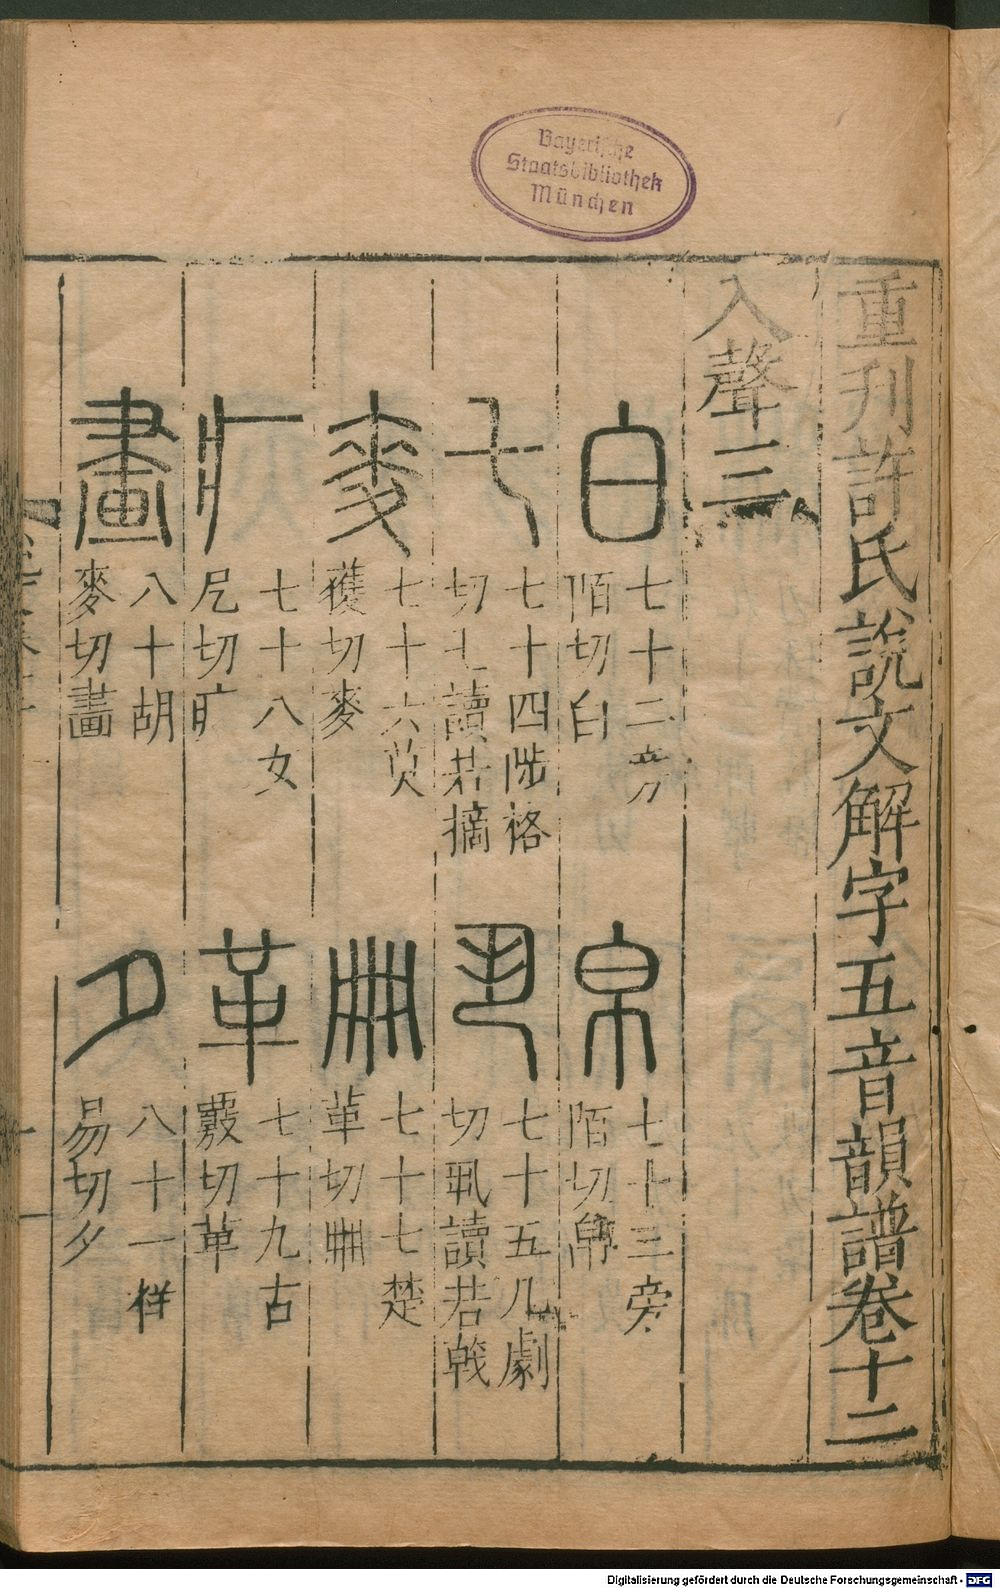 Bayerische
Staatsbibliothek
München
重刋許氏說文解字五音韻譜卷十二
入聲三
白
七十二旁
陌切白
帛
七十三旁
陌切帛
乇
七十四陟格
切乇讀若摘
丮
七十五几劇
切丮讀若戟
麥
七十六莫
獲切麥
冊
七十七楚
革切冊
疒
七十八女
戹切疒
革
七十九古
覈切革
畫
八十胡
麥切畫
夕
八十一祥
易切夕
Digitalisierung gefördert durch die Deutsche Forschungsgemeinschaft - DFG